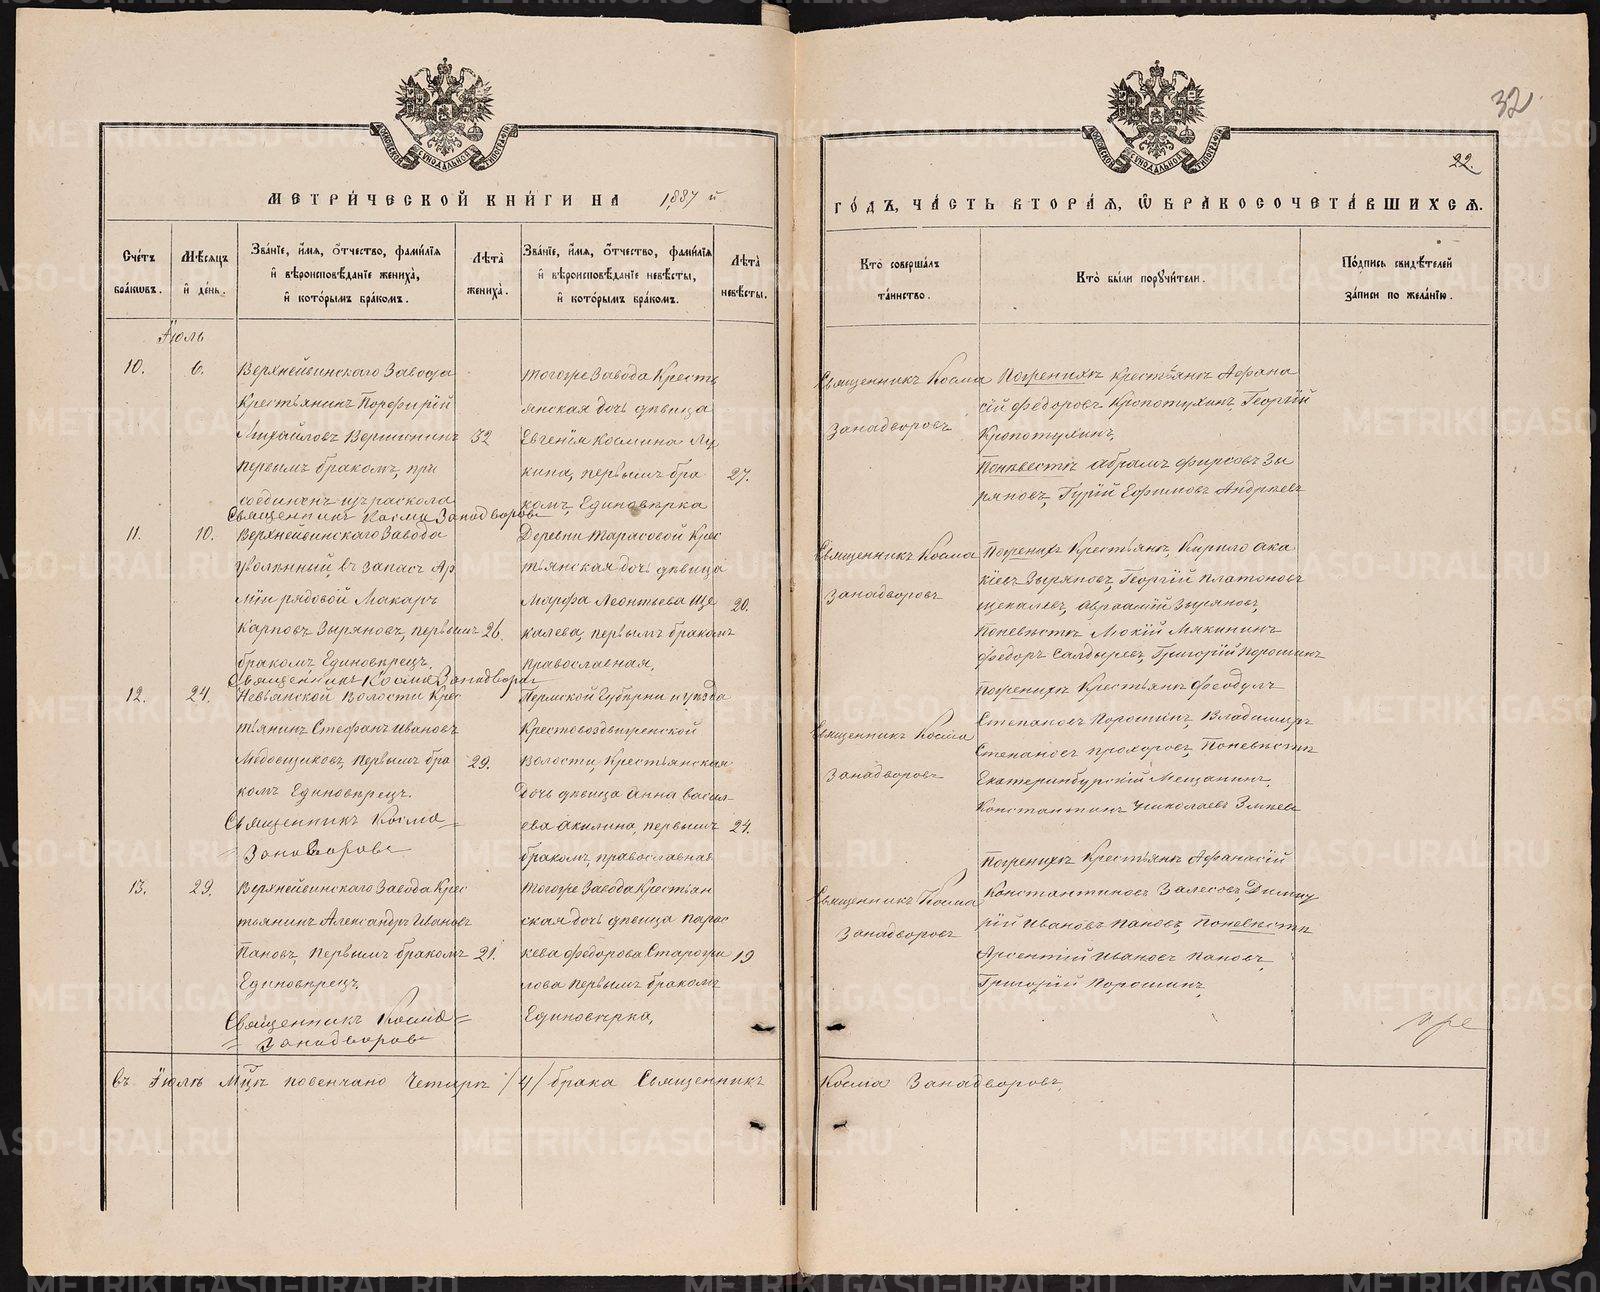 32
22.
МЕТРИ́ЧЕСКОЙ КНИ́ГИ НА 1887 й
ГО́ДЪ, ЧА́СТЬ ВТОРА́Я, Ѡ БРАКОСОЧЕТА́ВШИХСЯ.
Сче́тъ бра́кѡвъ.
Мѣ́сяцъ и҆ де́нь.
Зва́нїе, и҆́мя, ѻ҆́тчество, фами́лїя
и҆ вѣроисповѣ́данїе жениха̀,
и҆ кото́рымъ бра́комъ.
Лѣта̀ жениха̀.
Зва́нїе, и҆́мя, ѻ҆́тчество, фами́лїя
и҆ вѣроисповѣ́данїе невѣ́сты,
и҆ кото́рымъ бра́комъ.
Лѣта̀ невѣ́сты.
Кто̀ соверша́лъ
та́инство.
Кто̀ бы́ли порꙋчи́тели.
По́дпись свидѣ́телей
за́писи по жела́нїю.
Іюль
10.
6.
Верхнейвинскаго Завода
Крестьянинъ Порфирій
Михайловъ Вершининъ
первымъ бракомъ, при
соединенъ изъ раскола
Священникъ Косма Занадворовъ
32
тогоже Завода Кресть
янская дочь дѣвица
Евгенія Космина Лу
кина, первымъ бра
комъ, Единовѣрка
27.
Священникъ Косма
Занадворовъ
Поженихѣ Крестьянѣ Афана
сій Федоровъ Кропотухинъ, Георгій
Кропотухинъ,
Поневѣстѣ Абрамъ Фирсовъ Зы
ряновъ, Гурій Ефимовъ Андреевъ
11.
10.
Верхнейвинскаго Завода
уволенный въ запасъ Ар
міи рядовой Макаръ
Карповъ Зыряновъ, первымъ
бракомъ, Единовѣрецъ.
Священникъ Косма Занадворов
26.
Деревни Тарасовой Крес
тьянская дочь дѣвица
Марфа Леонтьева Ще
калева, первымъ бракомъ
православная.
20.
Священникъ Косма
Занадворовъ
Поженихѣ Крестьянѣ, Кирило Ака
кіевъ Зыряновъ, Георгій Платоновъ
Щекалевъ, Авраамій Зыряновъ,
Поневѣстѣ Мокій Мякининъ
Федоръ Салдыревъ, Григорій Порошинъ
12.
24.
Невьянской Волости Крес
тьянинъ Стефанъ Ивановъ
Медовщиковъ, первымъ бра
комъ Единовѣрецъ.
Священникъ Косма
Занадворовъ
29.
Пермской Губерни и уѣзда
Крестовоздвиженской
Волости, Крестьянская
Дочь дѣвица Анна Васил
ева Акилина, первымъ
бракомъ, православная
24.
Священникъ Косма
Занадворовъ
Поженихѣ Крестьянѣ Феодулъ
Степановъ Порошинъ, Владимиръ
Степановъ Прохоровъ, Поневѣстѣ
Екатеринбургскій Мещанинъ,
Константинъ Николаевъ Змеевъ
13.
29.
Верхнейвинскаго Завода Крес
тьянинъ Александръ Ивановъ
Пановъ, Первымъ бракомъ
Единовѣрецъ,
Священникъ Косма
Занадворовъ
21.
тогоже Завода Крестьян
ская дочь дѣвица Парас
кева Федорова Старожи
лова первымъ бракомъ
Единовѣрка,
19
Священникъ Косма
Занадворовъ
Поженихѣ Крестьянѣ Афанасій
Константиновъ Залесовъ, Дмит
рій Ивановъ Пановъ, Поневѣстѣ
Арсентій Ивановъ Пановъ,
Григорій Порошинъ,
въ Іюлѣ М-цѣ повенчано Четыре /4/ брака Священникъ Косма Занадворовъ,
METRIKI.GASO-URAL.RU